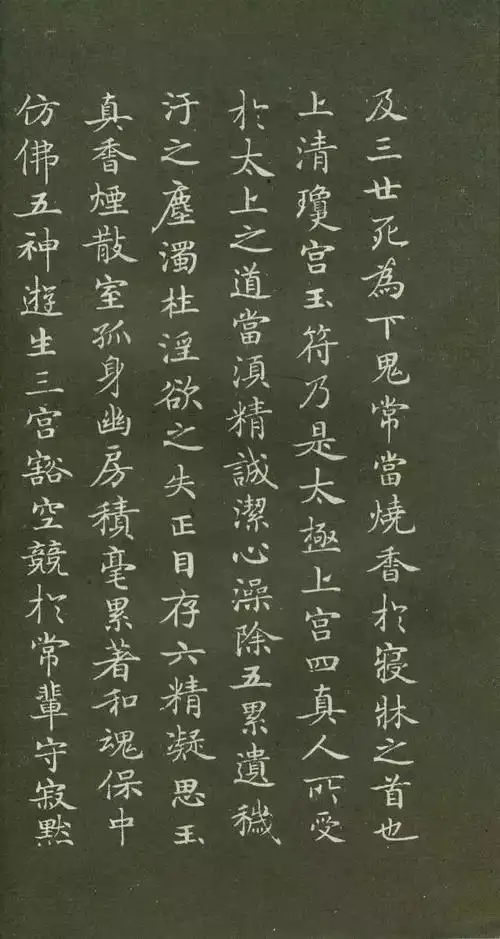 及三廿死為下鬼常當燒香於寢牀之首也
上清瓊宫玉符乃是太極上宫四真人所受
於太上之道當湏精誠潔心澡除五累遺穢
汙之塵濁杜淫欲之失正目存六精凝思玉
真香煙散室孤身幽房積毫累著和魂保中
仿佛五神遊生三宫豁空競於常輩守寂默